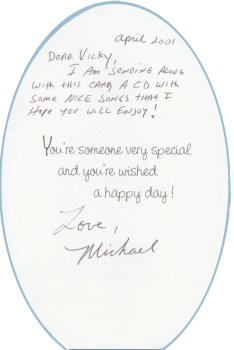 April 2001
Dear Vicky,
I Am Sending Along
with this card, A CD with
Some Nice Songs that I
Hope you will Enjoy!
You're someone very special
and you're wished
a happy day!
Love,
Michael